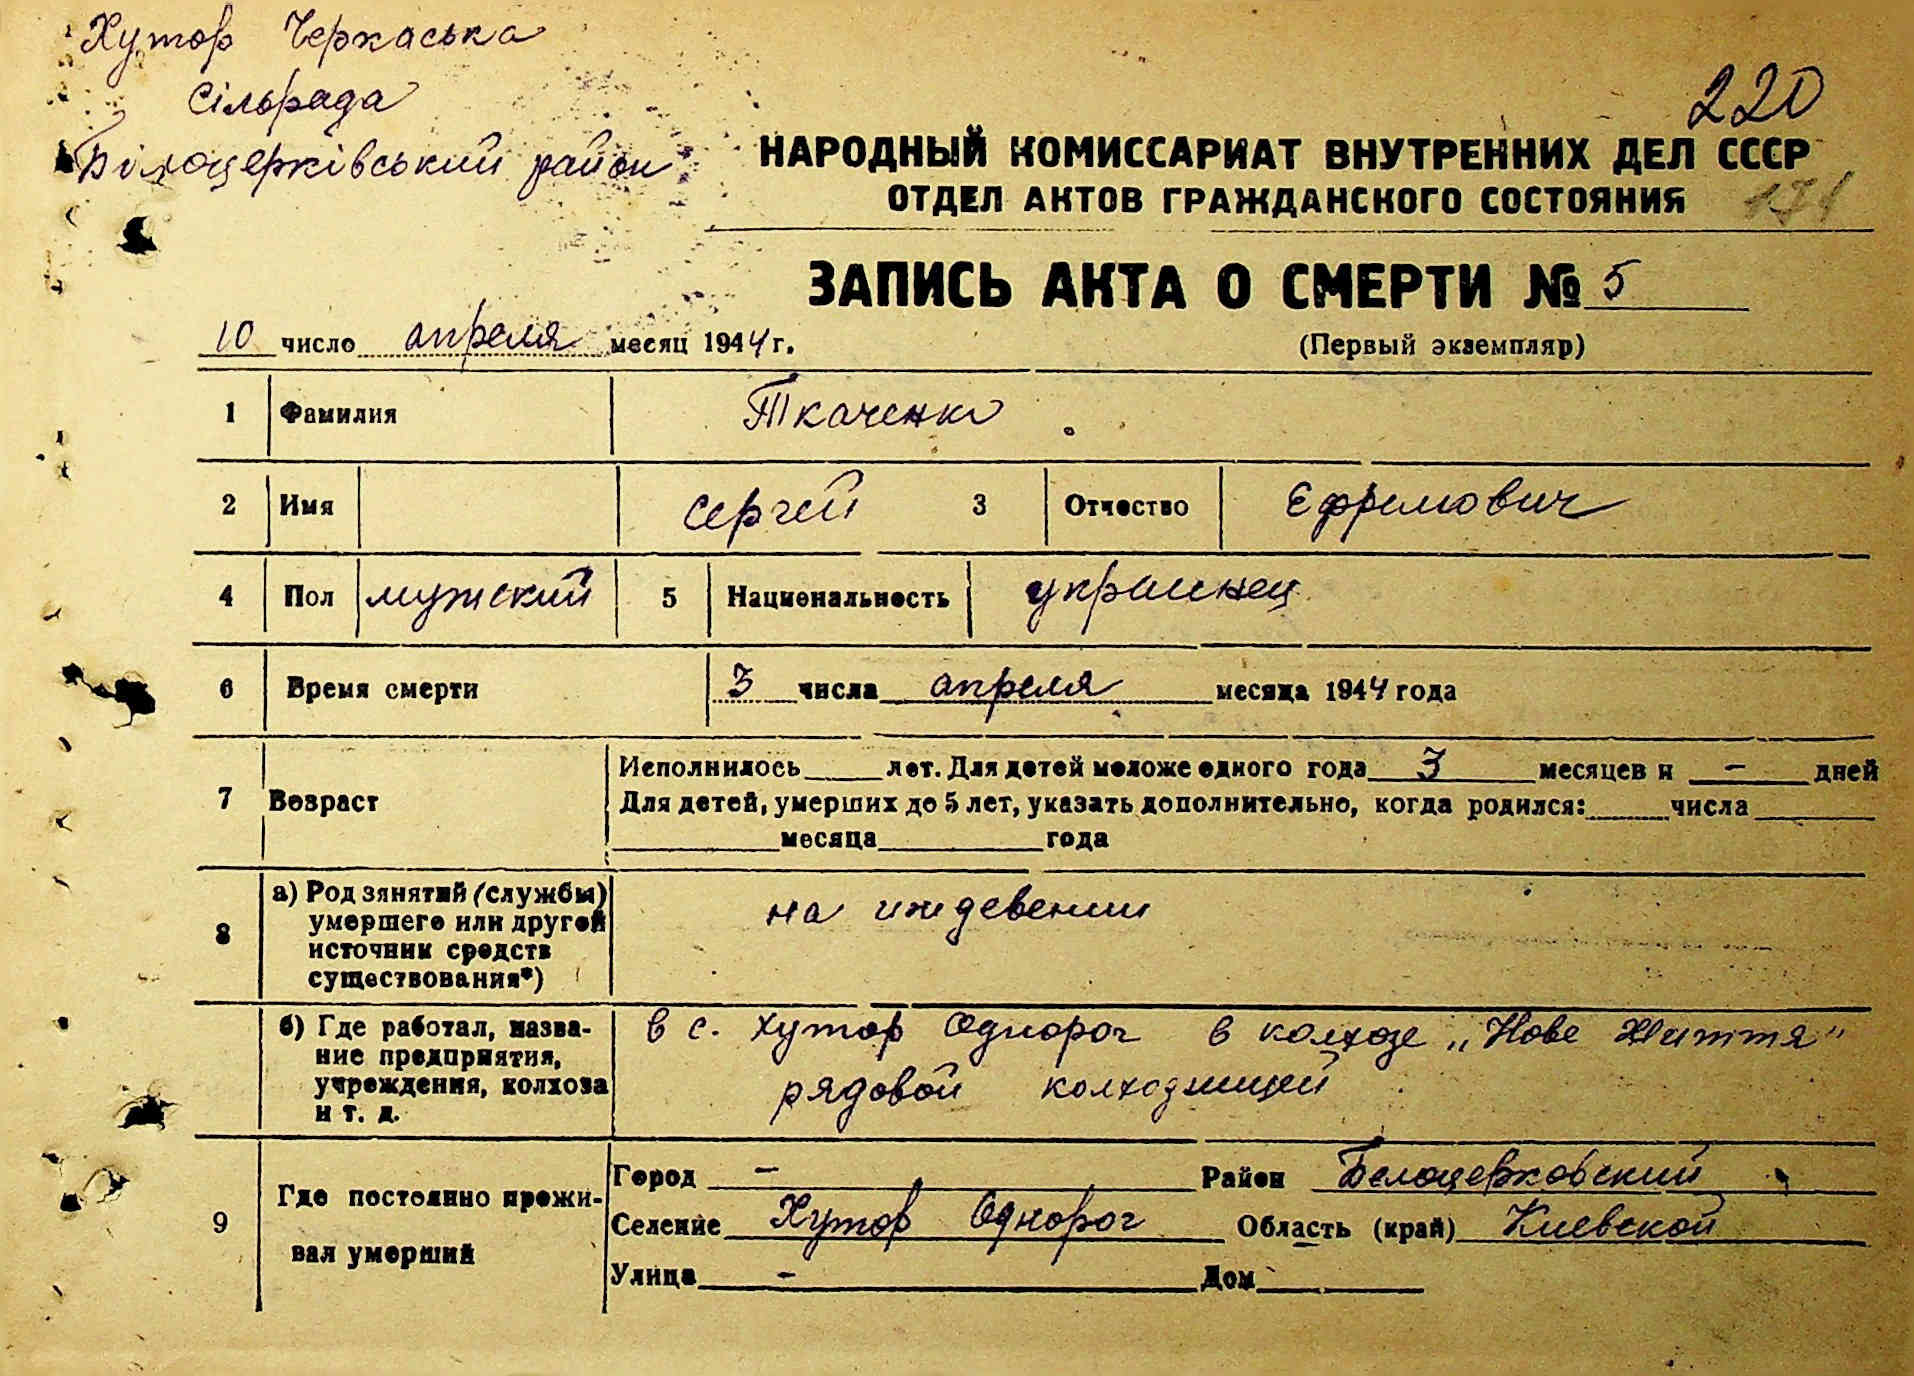 Хутор Черкаська
Сільрада
Білоцерківський район
220
НАРОДНЫЙ КОМИССАРИАТ ВНУТРЕННИХ ДЕЛ СССР
ОТДЕЛ АКТОВ ГРАЖДАНСКОГО СОСТОЯНИЯ 171
ЗАПИСЬ АКТА О СМЕРТИ № 5
10 число апреля месяц 1944 г. (Первый экземпляр)
1 Фамилия Ткаченко
2 Имя Сергей 3 Отчество Ефремович
4 Пол мужский 5 Национальность украинец
6 Время смерти 3 числа апреля месяца 1944 года
7 Возраст Исполнилось лет. Для детей моложе одного года 3 месяцев и — дней
Для детей, умерших до 5 лет, указать дополнительно, когда родился: числа
месяца года
8 а) Род зянятий (службы) умершего или другой источник средств существования*) на иждевении
б) Где работал, название предприятия, учреждения, колхоза и т. д. в с. Хутор Однорог в колхозе „Нове Життя"
рядовой колхозницей
9 Где постоянно проживал умерший Город — Район Белоцерковский
Селение Хутор Однорог Область (край) Киевской
Улица — Дом